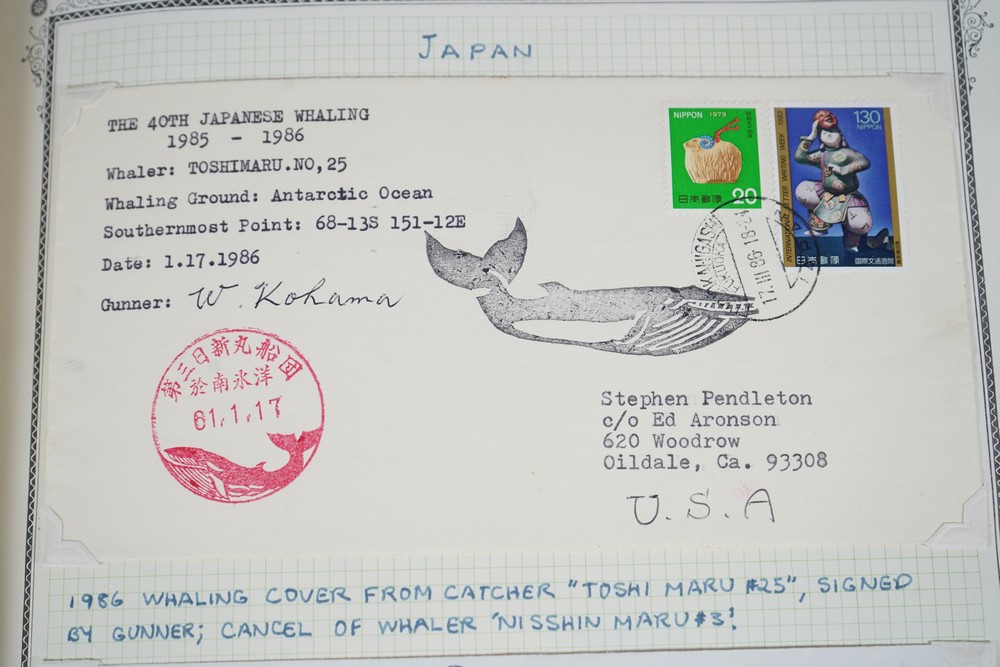 JAPAN
THE 40TH JAPANESE WHALING
1985 - 1986
Whaler: TOSHIMARU.NO,25
Whaling Ground: Antarctic Ocean
Southernmost Point: 68-13S 151-12E
Date: 1.17.1986
Gunner: W. Kohama
NIPPON 1979
日本郵便 20
130
NIPPON
INTERNATIONAL LETTER WRITING WEEK 1983
日本郵便 国際文通週間
17.III.86
JAPAN
第三日新丸船団
於南氷洋
61.1.17
Stephen Pendleton
c/o Ed Aronson
620 Woodrow
Oildale, Ca. 93308
U.S.A
1986 WHALING COVER FROM CATCHER "TOSHI MARU #25", SIGNED
BY GUNNER; CANCEL OF WHALER 'NISSHIN MARU #3'.